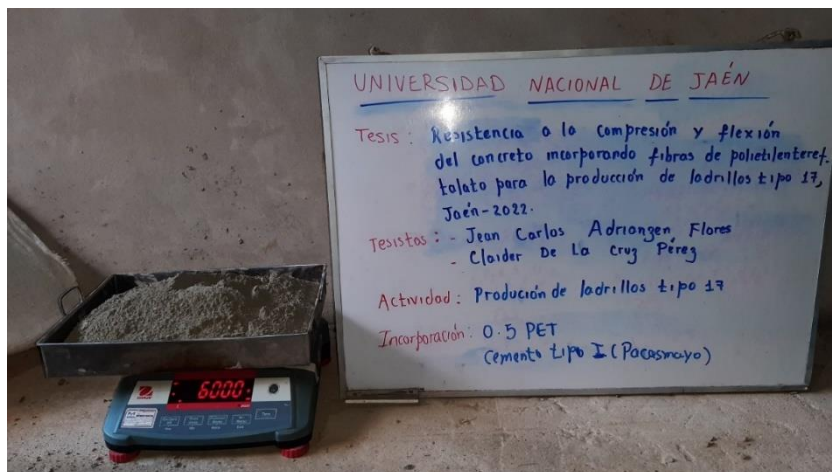 UNIVERSIDAD NACIONAL DE JAÉN
Tesis: Resistencia a la compresión y flexión
del concreto incorporando fibras de polietilenteref-
talato para la producción de ladrillos tipo 17,
Jaén-2022.
Tesistas: - Jean Carlos Adrianzen Flores
- Claider De La Cruz Pérez
Actividad: Produción de ladrillos tipo 17
Incorporación: 0.5 PET
Cemento tipo I (Pacasmayo)
6000
OHAUS